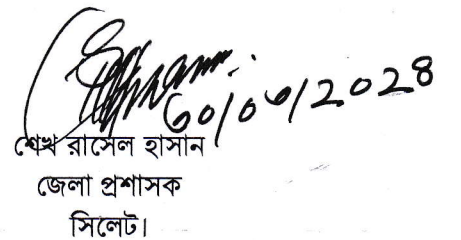 ৩০/০৩/২০২৪
শেখ রাসেল হাসান
জেলা প্রশাসক
সিলেট।